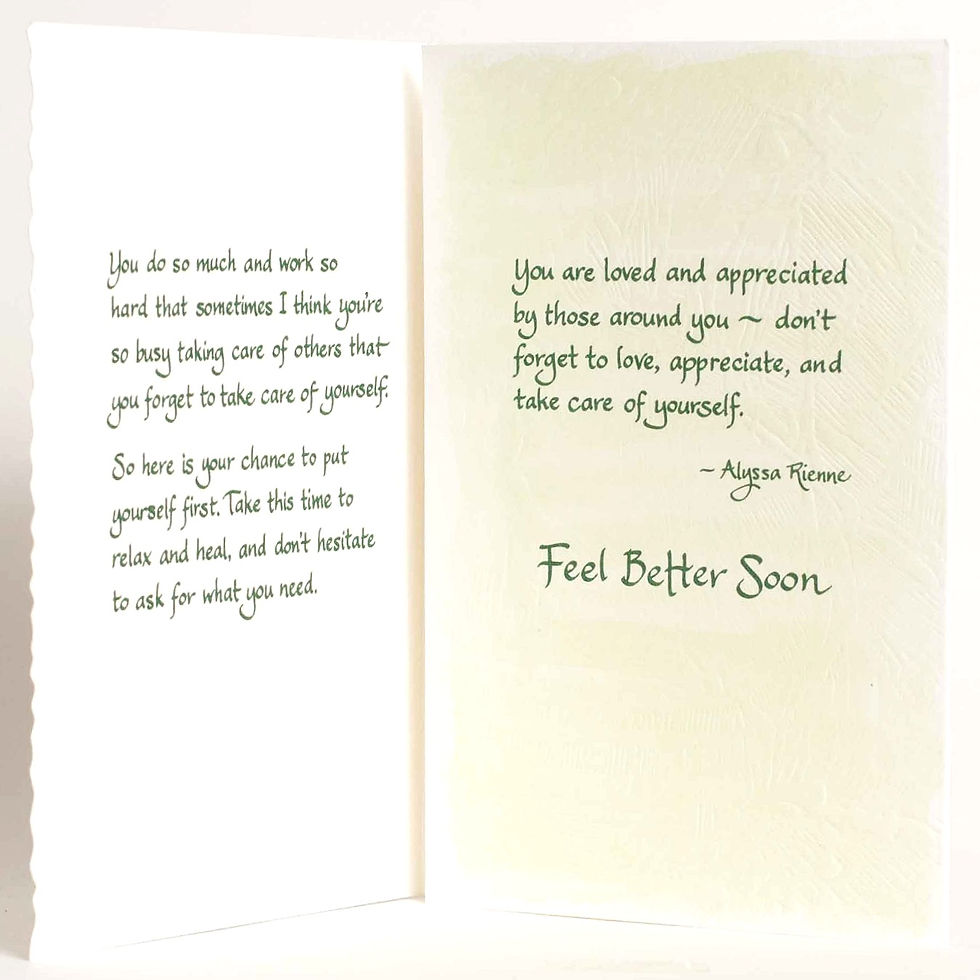 You do so much and work so
hard that sometimes I think you're
so busy taking care of others that
you forget to take care of yourself.
So here is your chance to put
yourself first. Take this time to
relax and heal, and don't hesitate
to ask for what you need.
You are loved and appreciated
by those around you ~ don't
forget to love, appreciate, and
take care of yourself.
~ Alyssa Rienne
Feel Better Soon